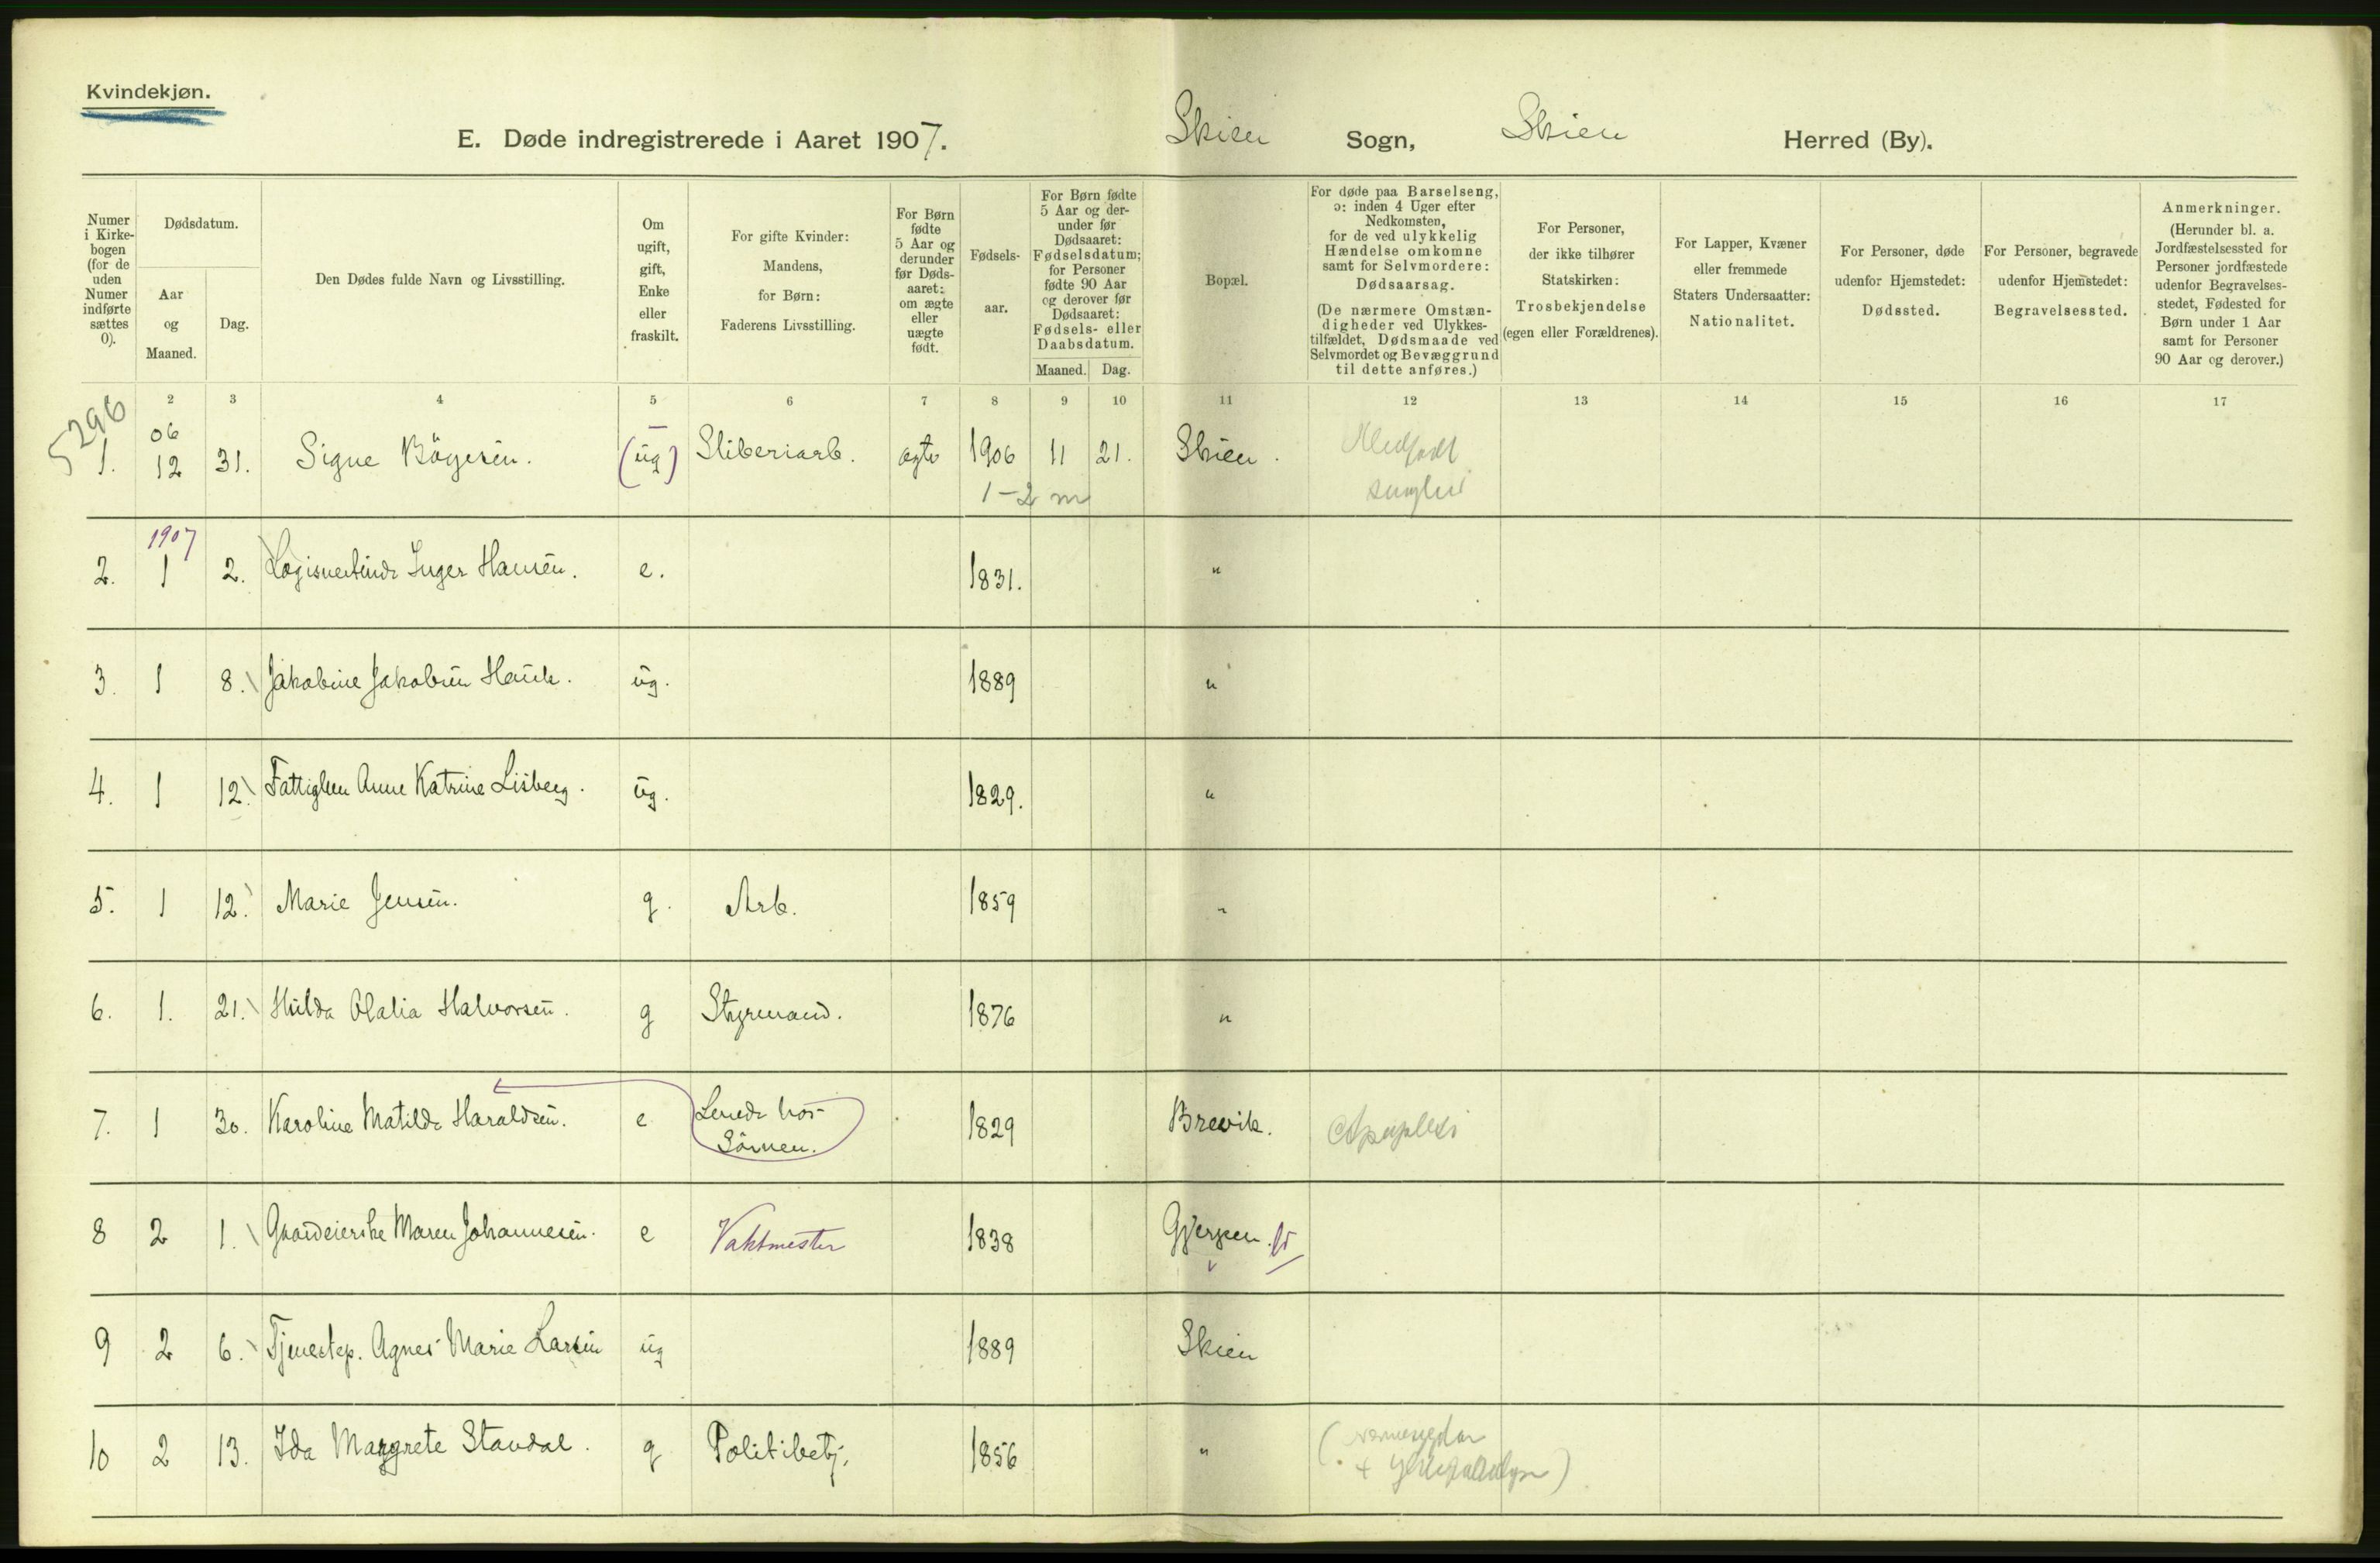 Kvindekjøn.
E. Døde indregistrerede i Aaret 1907. Skien Sogn, Skien Herred (By).
Numer i Kirkebogen (for de uden Numer indførte sættes 0).
Dødsdatum.
Aar og Maaned.
Dag.
Den Dødes fulde Navn og Livsstilling.
Om ugift, gift, Enke eller fraskilt.
For gifte Kvinder: Mandens, for Børn: Faderens Livsstilling.
For Børn fødte 5 Aar og derunder før Dødsaaret: om ægte eller uægte født.
Fødselsaar.
For Børn fødte 5 Aar og derunder før Dødsaaret: Fødselsdatum; for Personer fødte 90 Aar og derover før Dødsaaret: Fødsels- eller Daabsdatum.
Maaned. Dag.
Bopæl.
For døde paa Barselseng, ɔ: inden 4 Uger efter Nedkomsten, for de ved ulykkelig Hændelse omkomne samt for Selvmordere: Dødsaarsag.
(De nærmere Omstændigheder ved Ulykkestilfældet, Dødsmaade ved Selvmordet og Bevæggrund til dette anføres.)
For Personer, der ikke tilhører Statskirken: Trosbekjendelse (egen eller Forældrenes).
For Lapper, Kvæner eller fremmede Staters Undersaatter: Nationalitet.
For Personer, døde udenfor Hjemstedet: Dødssted.
For Personer, begravede udenfor Hjemstedet: Begravelsessted.
Anmerkninger. (Herunder bl. a. Jordfæstelsessted for Personer jordfæstede udenfor Begravelsesstedet, Fødested for Børn under 1 Aar samt for Personer 90 Aar og derover.)
2 3 4 5 6 7 8 9 10 11 12 13 14 15 16 17
5296
06
1. 12 31. Signe Böyesen. (ug) Sliberiarb. ægte 1906 11 21. Skien.
1-2 m
1907
2. 1 2. Logisvertinde Inger Hansen. e. 1831. "
3. 1 8. Jakobine Jakobsen Hauk. ug. 1889 "
4. 1 12. Fattiglem Anne Katrine Lisberg. ug. 1829. "
5. 1 12. Marie Jensen. g. Arb. 1859 "
6. 1. 21. Hulda Olalia Halvorsen. g Styrmand. 1876 "
7. 1 30. Karoline Matilde Haraldsen. e Levede hos Sönnen. 1829 Brevik. Apoplexi
8 2 1. Gaardeierske Maren Johannesen. e Vaktmester 1838 Gjerpen.
9 2 6. Tjenestep. Agnes Marie Larsen ug 1889 Skien
10 2 13. Ida Margrete Stavdal. g Politibetj. 1856 "